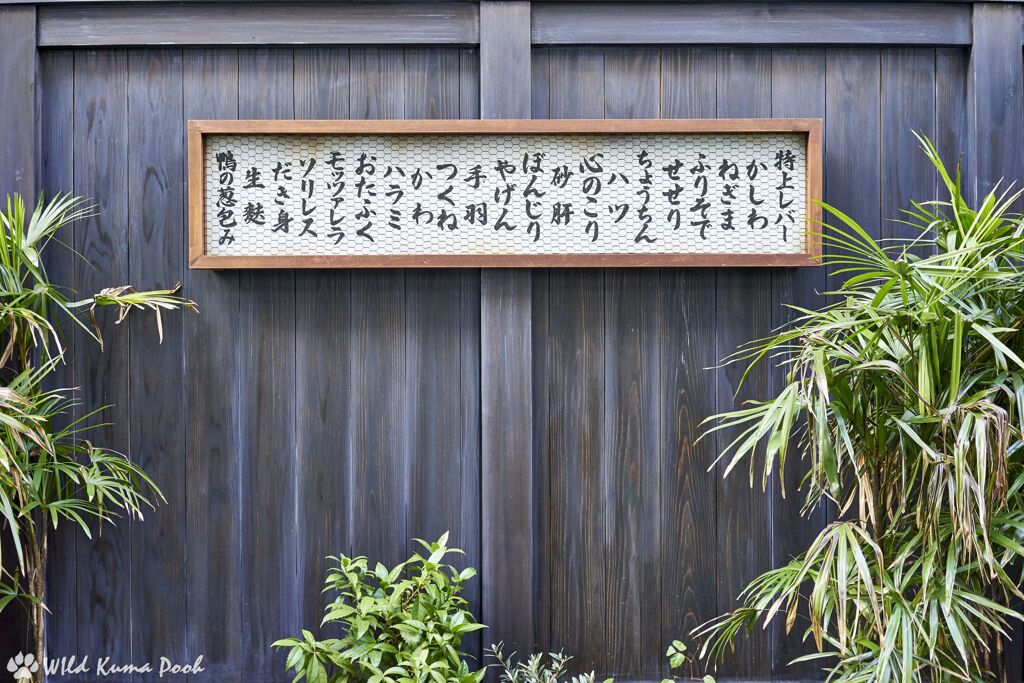 特上レバー
かしわ
ねぎま
ふりそで
せせり
ちょうちん
ハツ
心のこり
砂肝
ぼんじり
やげん
手羽
つくね
かわ
ハラミ
おたふく
モッツァレラ
ソリレス
だき身
生麩
鴨の葱包み
Wild Kuma Pooh